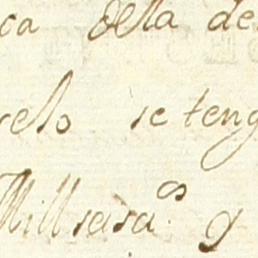 ca della de
relo se teng
Millsasa.os y